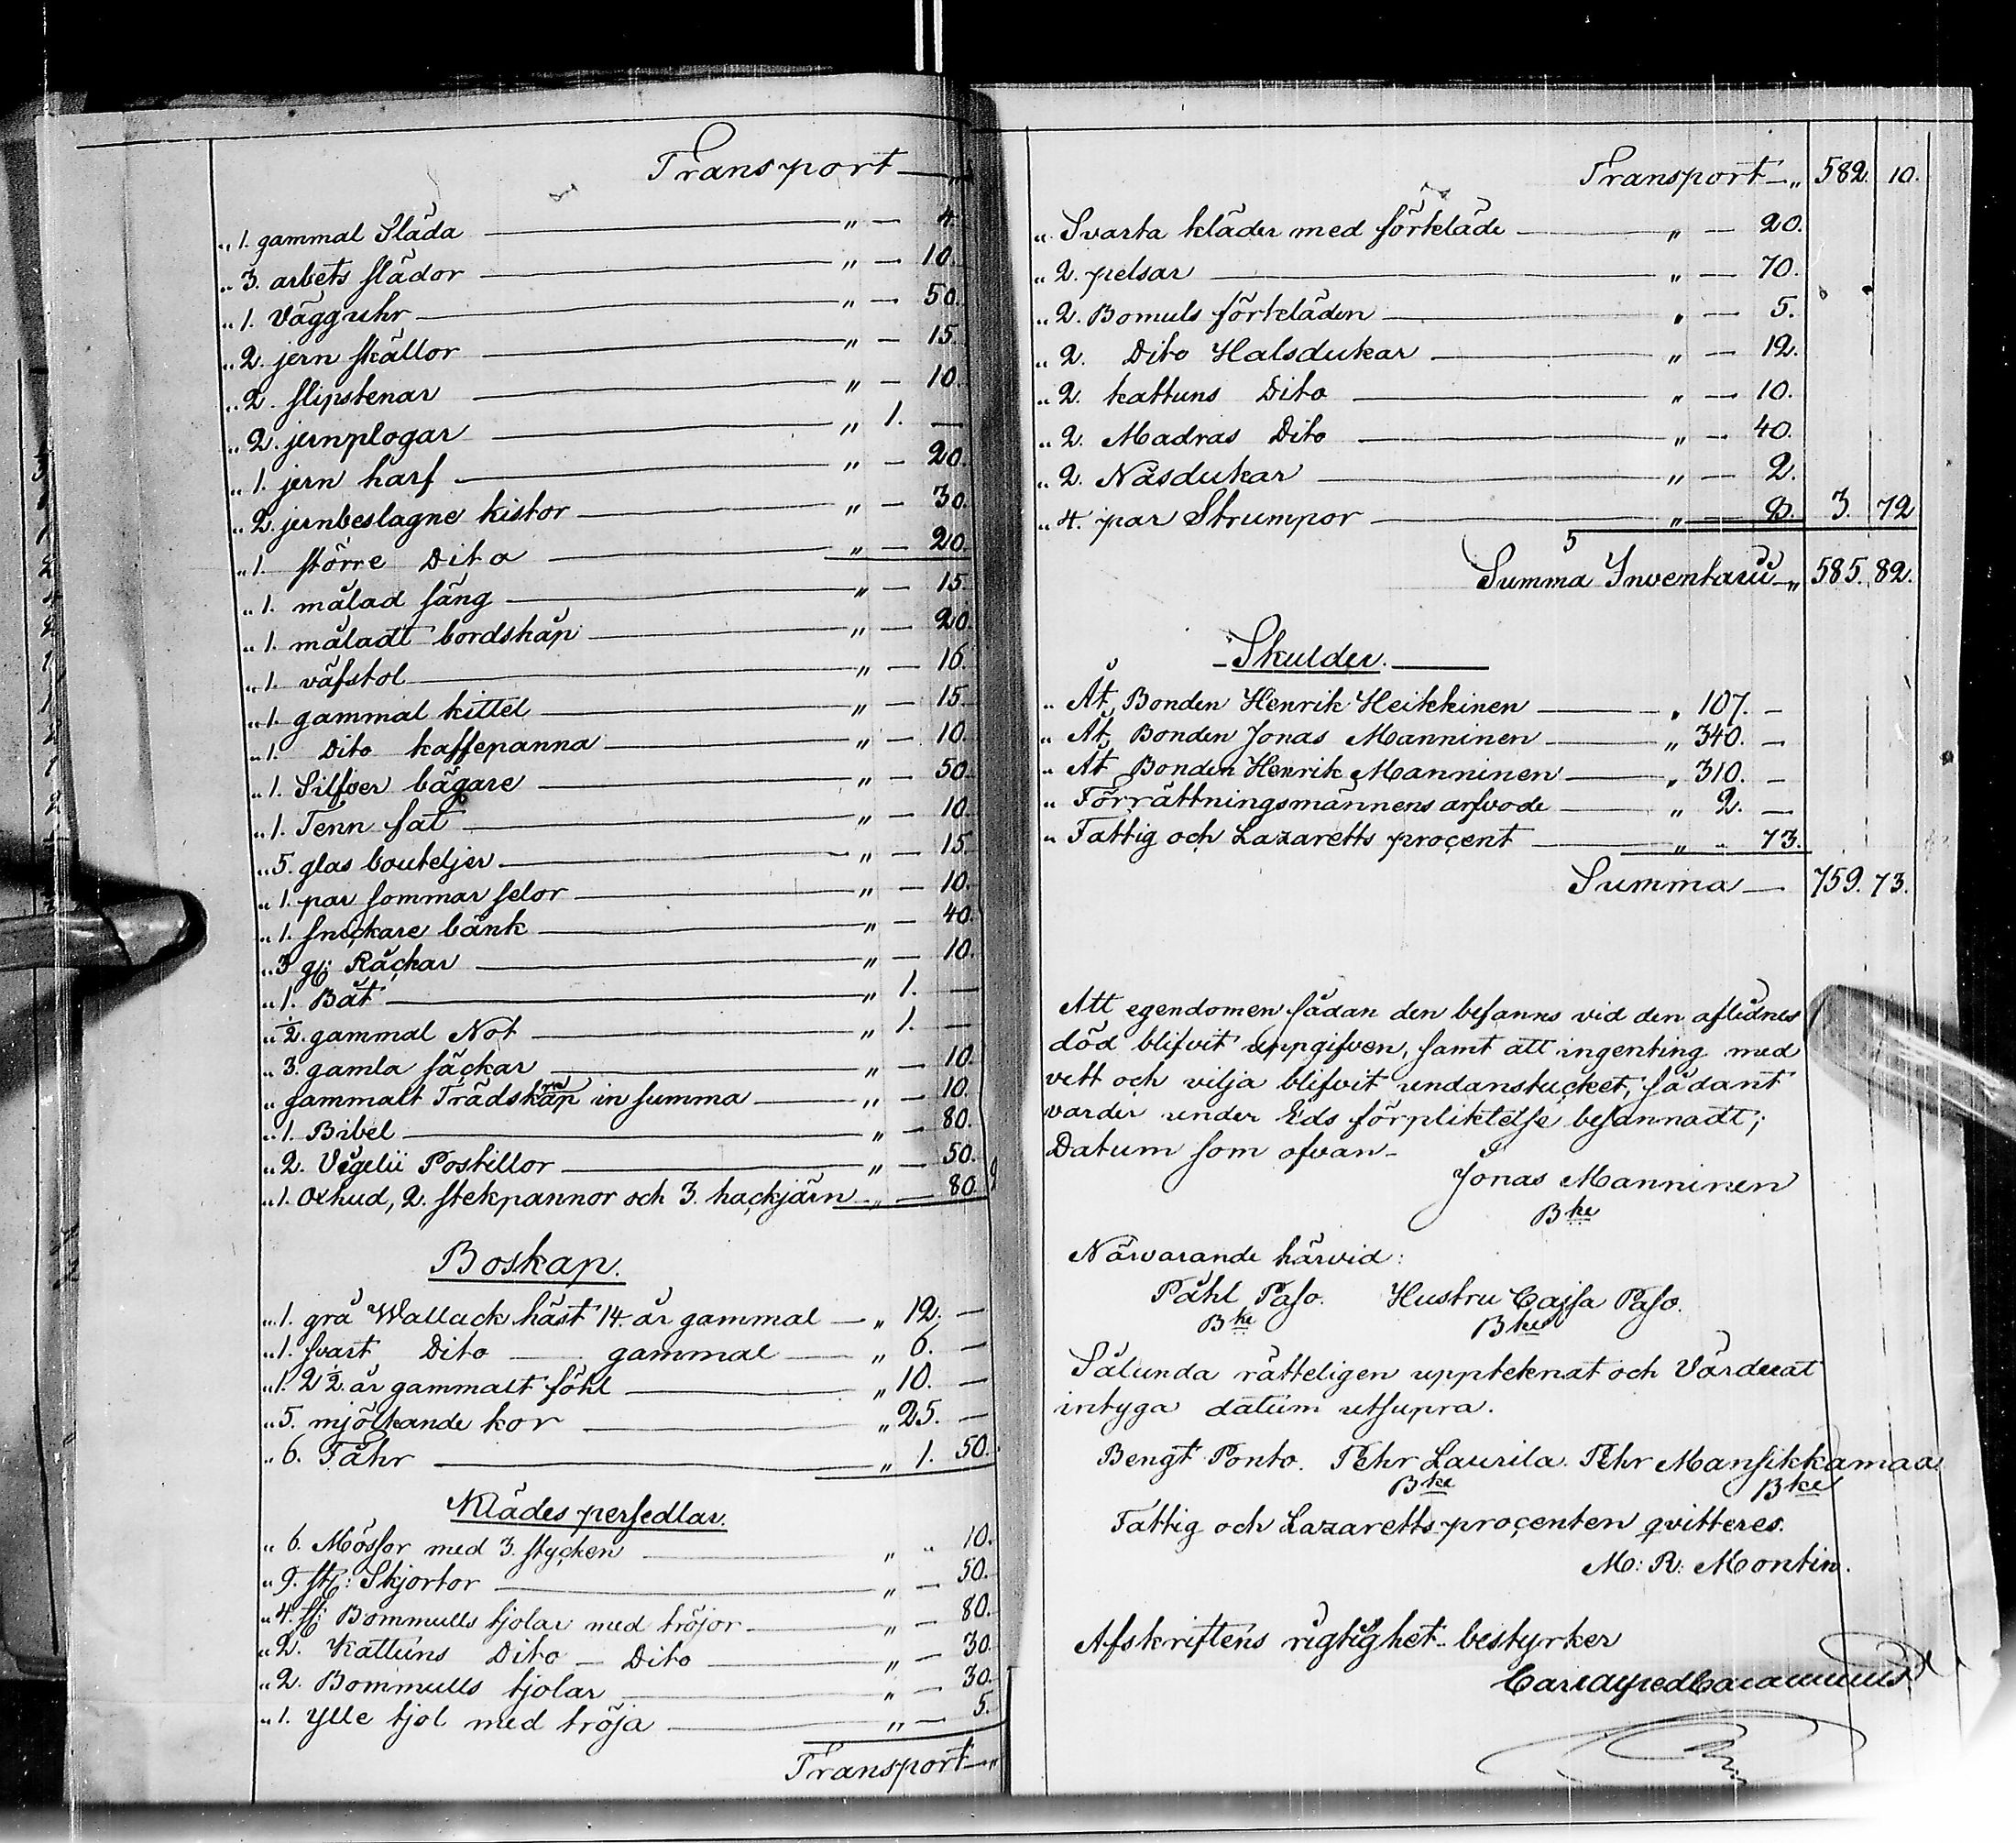 Transport — „
„ 1. gammal Släda — „ — 4.
„ 3. arbets slädor — „ — 10.
„ 1. Vägguhr — „ — 50.
„ 2. jern skällor — „ — 15.
„ 2. slipstenar — „ — 10.
„ 2. jernplogar — „ 1. —
„ 1. jern harf — „ — 20.
„ 2. jernbeslagne kistor — „ — 30.
„ 1. större Dito — „ — 20.
„ 1. målad säng — „ — 15.
„ 1. måladt bordskåp — „ — 20.
„ 1. väfstol — „ — 16.
„ 1. gammal kittel — „ — 15.
„ 1. Dito kaffepanna — „ — 10.
„ 1. Silfver bägare — „ — 50.
„ 1. Tenn fat — „ — 10.
„ 5. glas bouteljer — „ — 15.
„ 1. par sommar selor — „ — 10.
„ 1. snickare bänk — „ — 40.
„ 3 Räckar — „ — 10.
„ 1. Båt — „ 1. —
„ ½. gammal Not — „ 1. —
„ 3. gamla säckar — „ — 10.
„ gammalt Trädskap in summa — „ — 10.
„ 1. Bibel — „ — 80.
„ 2. Vegelii Postillor — „ — 50.
„ 1. Oxhud, 2. stekpannor och 3. hackjärn „ — 80.
Boskap.
„ 1. grå Wallack häst 14. år gammal — „ 12. —
„ 1. svart Dito — gammal — „ 6. —
„ 1. 2 ½ år gammalt föhl — „ 10. —
„ 5. mjölkande kor — „ 25. —
„ 6. Fåhr — „ 1. 50.
Klädes persedlar.
„ 6. Mössor med 3. stycken — „ „ 10.
„ 9. st: Skjortor — „ — 50.
„ 4. st: Bommulls kjolar med tröjor — „ — 80.
„ 2. Kattuns Dito — Dito — „ — 30.
„ 2. Bommulls kjolar — „ — 30.
„ 1. Ylle kjol med tröja — „ — 5.
Transport — „
Transport — „ 582. 10.
„ Svarta kläder med förkläde — „ — 20.
„ 2. pelsar — „ — 70.
„ 2. Bomuls förkläden — „ — 5.
„ 2. Dito Halsdukar — „ — 12.
„ 2. kattuns Dito — „ — 10.
„ 2. Madras Dito — „ — 40.
„ 2. Näsdukar — „ — 2.
„ 4. par Strumpor — „ — 3. 72
Summa Inventarii — „ 585. 82.
Skulder.
„ Åt Bonden Henrik Heikkinen — „ 107. —
„ Åt Bonden Jonas Manninen — „ 340. —
„ Åt Bonden Henrik Manninen — „ 310. —
„ Förrättningsmännens arfvode — „ 2. —
„ Fattig och Lazaretts procent — „ „ 73.
Summa — 759. 73.
Att egendomen sådan den befanns vid den aflidnes
död blifvit uppgifven, samt att ingenting med
vett och vilja blifvit undanstucket, sådant
varder under Eds förpliktelse besannadt;
Datum som ofvan —
Jonas Manninen
Bke
Närvarande härvid:
Påhl Paso. Hustru Cajsa Paso.
Bke Bke
Sålunda rätteligen uppteknat och Värderat
intyga datum utsupra.
Bengt Ponto. Pehr Laurila. Pehr Mansikkamaa
Bke Bke
Fattig och Lazaretts procenten qvitteres.
M: R: Montin.
Afskriftens rigtighet bestyrker